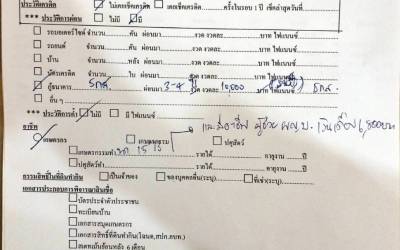 ประวัติเครดิต ไม่เคยเช็คเครดิต เคยเช็คเครดิต ครั้งในรอบ 1 ปี เช็คล่าสุดวันที่
*** ประวัติการผ่อน ไม่มี มี
รถมอเตอร์ไซค์ จำนวน คัน ผ่อนมา งวด งวดละ บาท ไฟแนนซ์
รถยนต์ จำนวน คัน ผ่อนมา งวด งวดละ บาท ไฟแนนซ์
บ้าน จำนวน หลัง ผ่อนมา งวด งวดละ บาท ไฟแนนซ์
บัตรเครดิต จำนวน ใบ ผ่อนมา งวด งวดละ บาท ไฟแนนซ์
กู้ธนาคาร ธกส. ผ่อนมา 3-4 ปี งวดละ 10,000 บาท ไฟแนนซ์ ธกส.
อื่น ๆ
*** ประวัติการค้ำ ไม่มี มี ไฟแนนซ์
อาชีพ
เกษตรกร
ปศุสัตว์
เกษตรกรรมทำ นา 15 ไร่ รายได้ อายุงาน ปี
ปศุสัตว์ทำ รายได้ อายุงาน ปี
กรรมสิทธิ์ในที่ดินทำกิน เป็นเจ้าของ ของบุคคลอื่น(ระบุ) ที่เช่า(ระบุ)
เอกสารประกอบการพิจารณาสินเชื่อ
บัตรประจำตัวประชาชน
ทะเบียนบ้าน
เอกสารสมุดเกษตรกร
เอกสารสิทธิ์ที่ดินทำกิน(โฉนด,สปก,ภบท.)
สเตทเม้นย้อนหลัง 6 เดือน